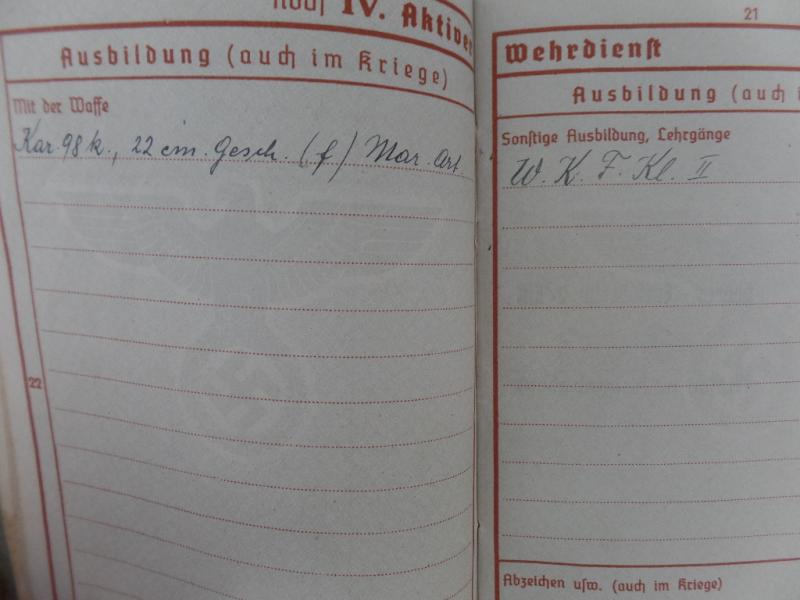 Noch IV. Aktiver
Ausbildung (auch im Kriege)
Mit der Waffe
Kar. 98 k., 22 cm. Gesch. (f) Mar. Art.
22
21
Wehrdienst
Ausbildung (auch i
Sonstige Ausbildung, Lehrgänge
W. K. F. Kl. II
Abzeichen usw. (auch im Kriege)